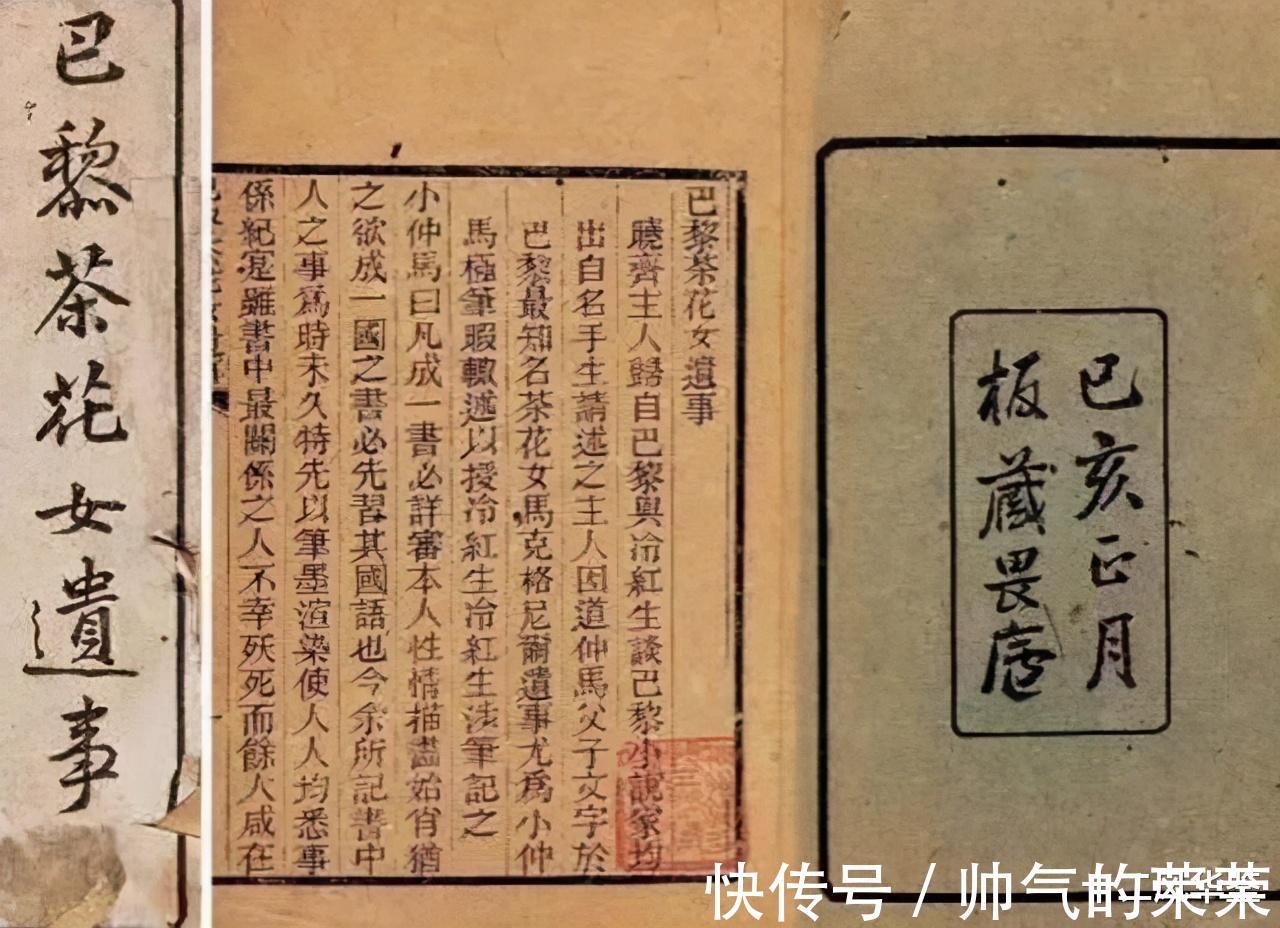 巴黎茶花女遺事
巴黎茶花女遺事
曉齋主人歸自巴黎與冷紅生談巴黎小說家均
出自名手生請述之主人因道仲馬父子文字於
巴黎最知名茶花女馬克格尼爾遺事尤為小仲
馬極筆暇輙述以授冷紅生冷紅生涉筆記之
小仲馬曰凡成一書必詳審本人性情描畫始肖猶
之欲成一國之書必先習其國語也今余所記書中
人之事爲時未久特先以筆墨渲染使人人均悉事
係紀寔雖書中最關係之人不幸殀死而餘人咸在
己亥正月
板藏畏廬
快传号 / 帅气的菜菜